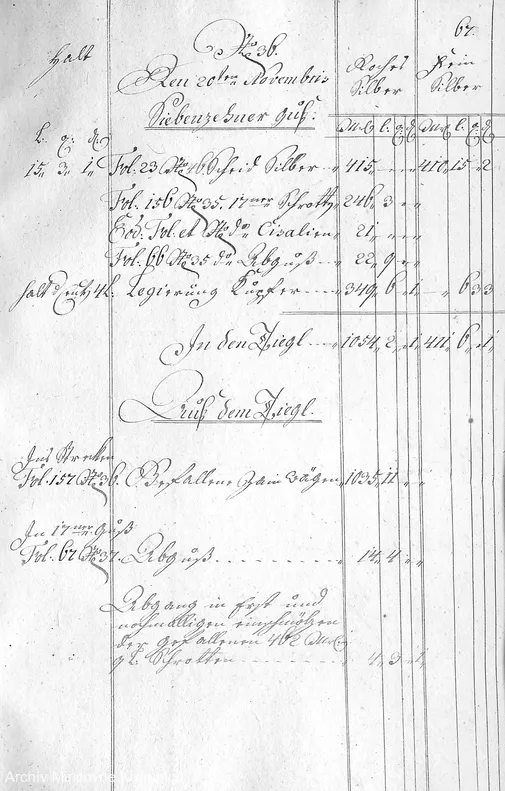 67.
Halt
No 36.
Den 20ten Novembris
Siebenzehner Guß:
Roches Silber
Fein Silber
L. q: d
M. L. q d M. L. q d
15„ 3„ 1„ Fol. 23 No 46 Scheid Silber 415„ „ „ 410„ 15„ 2
Fol. 156 No 35. 17ner Schrott 246„ 3 „ „
Eod: Fol. et No do Cisalien 21„ „ „
Fol. 66 No 35 do Abguß 22„ 9„ „
Halt d 4 L. Legierung Kupfer 349„ 6„ 1„ „ 6 3 3
In den Tiegl 1054„ 2„ 1„ 411„ 6„ 1„
Auß dem Tiegl.
Ins Strecken
Fol. 157 No 36. Gefallene Zain wägen 1035„ 11 „ „
In 17ner Guß
Fol. 67 No 37. Abguß 14„ 4 „ „
Abgang in Erst und
nochmalligen einschmölzen
der gefallenen 402
Schrotten 4„ 3„ 1„
Archiv